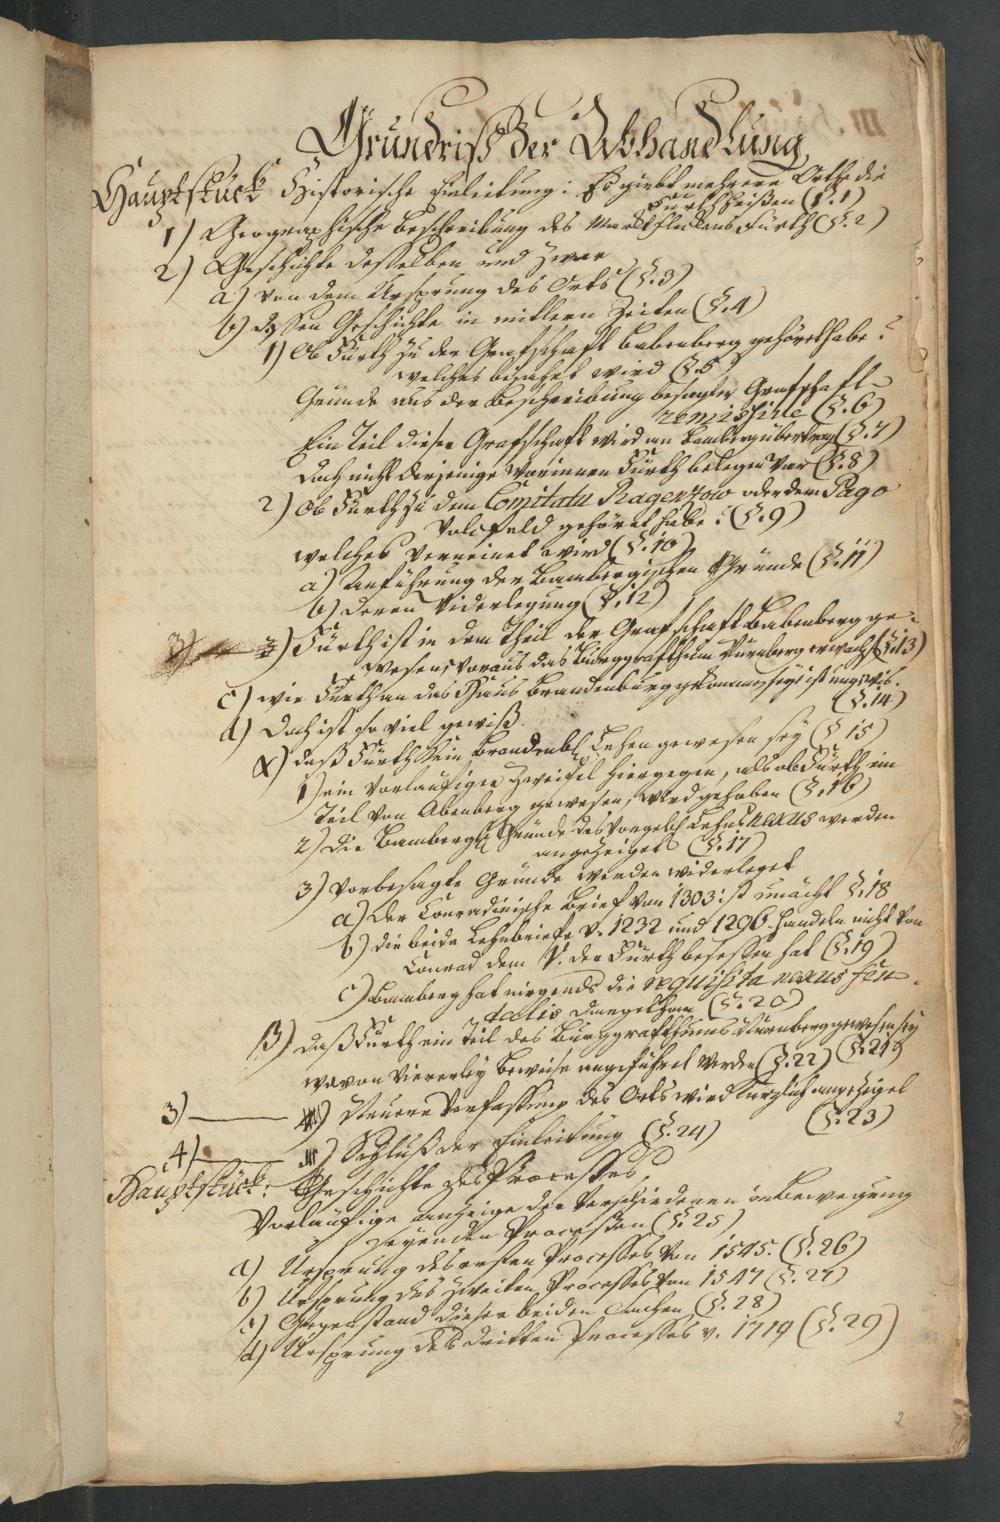 Grundriß der Abhandlung
Hauptstück Historische Einleitung: Es giebt mehrere Orthe die
Fürth heißen (§. 1)
1) Geographische Beschreibung des Marktfleckens Fürth (§. 2)
2) Geschichte desselben und zwar
a) von dem Ursprung des Orts (§. 3)
b) dessen Geschichte in mittlern Zeiten (§. 4)
1) Ob Fürth zu der Grafschaft Babenberg gehöret habe?
welches bejahet wird (§. 5
Gründe aus der Beschreibung besagter Grafschaft
remissive (§. 6)
Ein Teil dieser Grafschaft wird an Bamberg übertrag (§. 7)
Doch nicht derjenige worinnen Fürth belegen war (§. 8)
2) Ob Fürth zu dem Comitatu Ragenzow oder dem Pago
Volcfeld gehöret habe? (§. 9)
welches verneinet wird (§. 10)
a) Anführung der Bambergischen Gründe (§. 11)
b) deren Widerlegung (§. 12)
3) 3) Fürth ist in dem Theil der Grafschaft Babenberg ge=
wesen woraus das Burggrafthum Nürnberg erwachß (§. 13)
c) wie Fürth an das Haus Brandenburg gekommen seye ist ungewis.
(§. 14)
d) Doch ist so viel gewiß.
α) daß Fürth kein Brandenb. Lehen gewesen sey (§ 15)
1) ein vorläufiger Zweifel hiergegen, als ob Fürth ein
Teil von Abenberg gewesen, wird gehoben (§. 16)
2) Die Bamberg. Gründe des vorgebl. Lehns nexus werden
angezeiget (§. 17)
3) vorbesagte Gründe werden widerleget
a) Der Conradinische Brief von 1303 ist unächt §. 18
b) die beide Lehnbriefe v. 1232 und 1296 handeln nicht von
Conrad dem V. der Fürth besessen hat (§. 19)
c) Bamberg hat nirgends die requisita nexus feu=
dalis dargethan (§. 20)
β) daß Fürth ein Teil des Burggrafthums Nürnberg gewesen sey
wovon viererley Beweise angeführet werden (§. 22) (§. 21)
3) Neuere Verfassung des Orts wird kürzlich angezeiget
(§. 23)
4) Schluß der Einleitung (§. 24)
Hauptstück: Geschichte des Processes
Vorläufige Anzeige der verschiedenen in Bewegung
seyenden Processen (§. 25)
a) Ursprung des ersten Processes von 1545. (§. 26)
b) Ursprung des zweiten Processes von 1547 (§. 27)
c) Gegenstand dieser beiden Sachen (§. 28)
d) Ursprung des dritten Processes v. 1719 (§. 29)
2